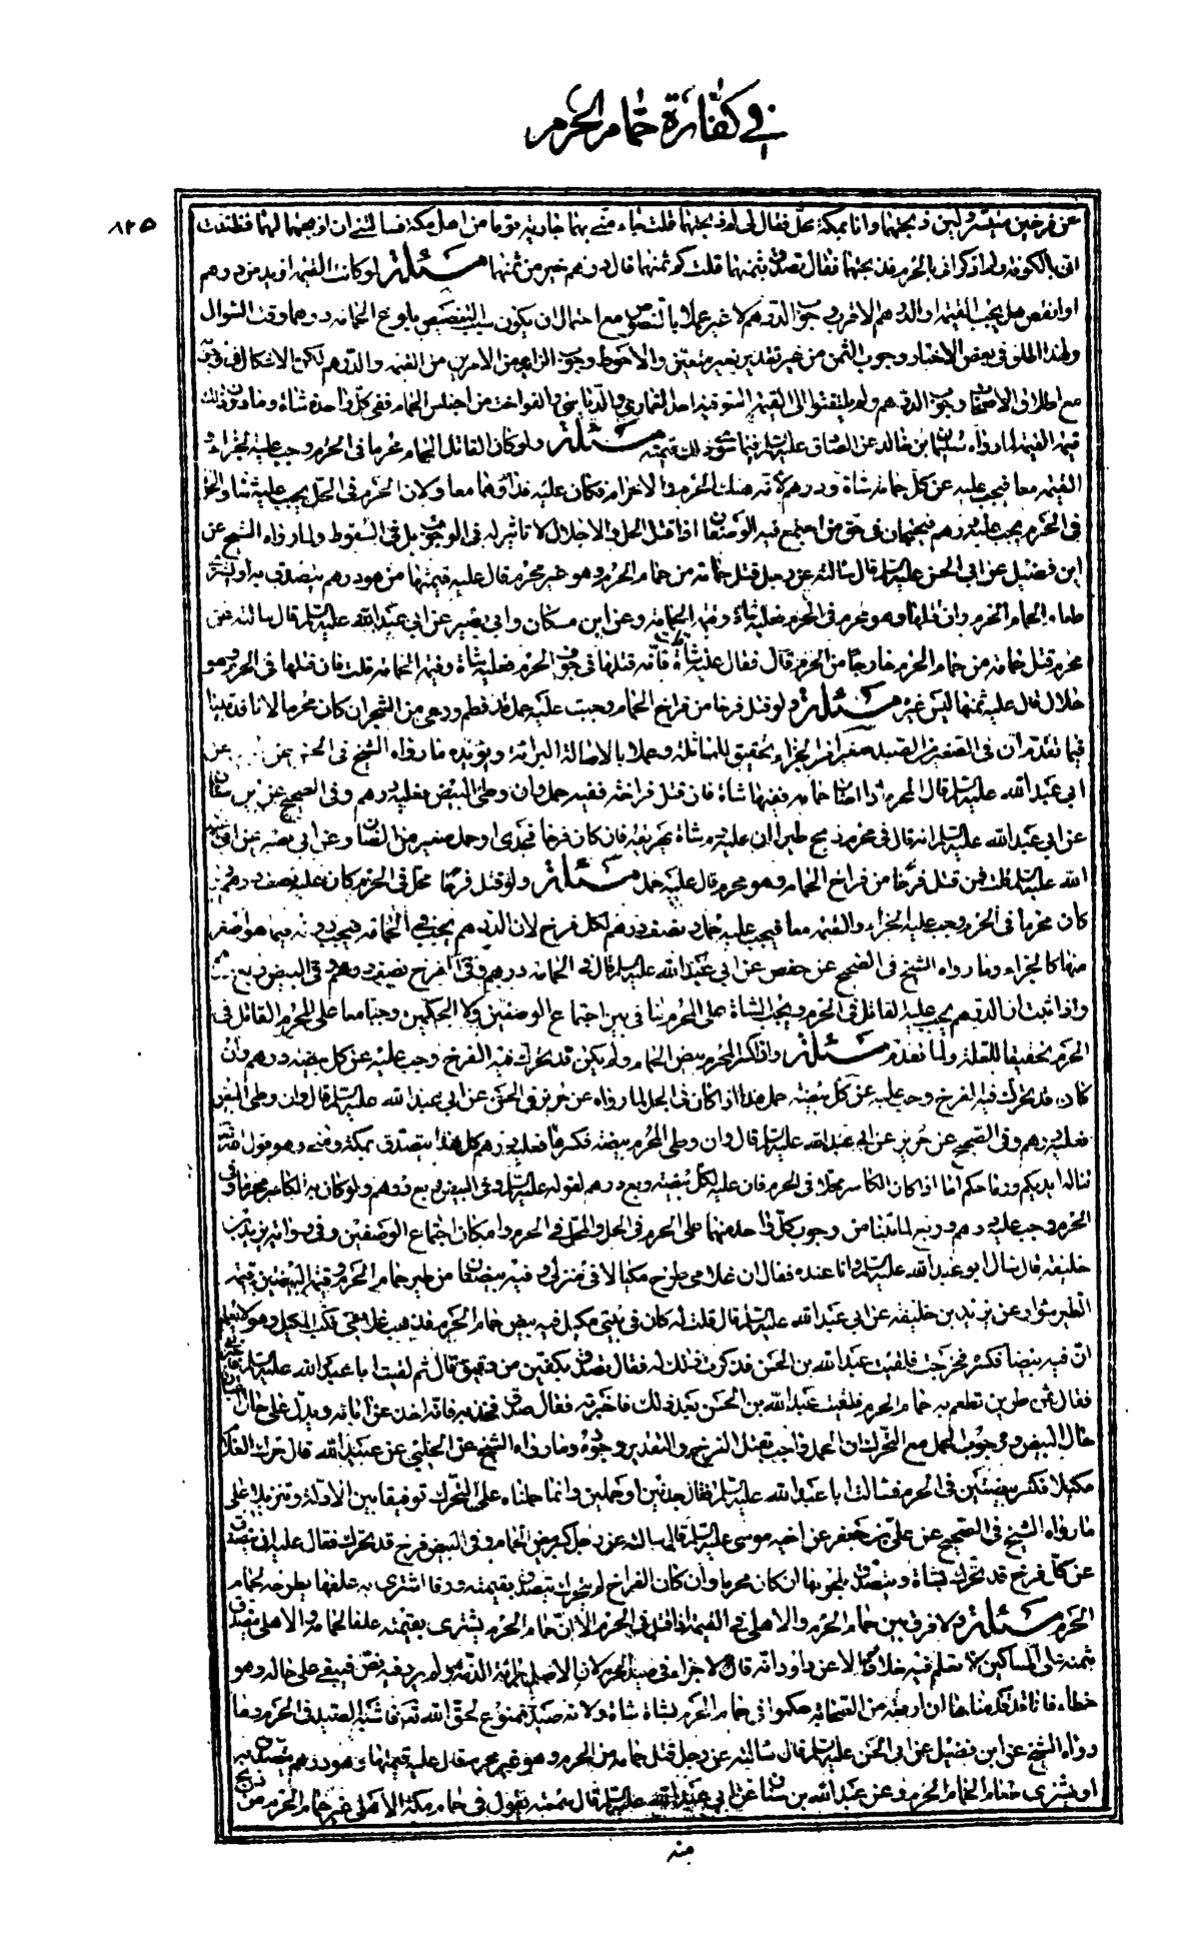 في كفارة حمام الحرم
٨٢٥
عن فرخين مسرولين ذبحتهما وانا بمكة محل فقال لي لم ذبحتهما قلت جاءتني بهما جارية قوم من اهل مكة فسالتني ان اذبحهما لها فظننت
اني بالكوفة ولم اذكر اني بالحرم فذبحتهما فقال تصدق بثمنهما قلت كم ثمنهما قال درهم خير من ثمنهما مسئلة لو كانت القيمة ازيد من درهم
او انقص هل يجب القيمة او الدرهم الاقرب وجوب الدرهم لا غير عملا بالنصوص مع احتمال ان يكون سبب التنصيص بلوغ الحمامة درهما وقت السؤال
ولهذا اطلق في بعض الاخبار وجوب الثمن من غير تقدير بغير منعتين والاحوط وجوب الزايد من الامرين من القيمة والدرهم لكن الاشكال
مع اطلاق الاصحاب وجوب الدرهم ولم يلتفتوا الى القيمة السوقية اما القماري والدباسي والفواخت من اجناس الحمام ففي كل واحدة شاة وما دون ذلك
قيمة القيمة لما رواه سليمان بن خالد عن الصادق عليه السلم فيما سوى ذلك قيمته مسئلة ولو كان القاتل للحمام محرما في الحرم وجب عليه الجزاء و
القيمة معا فيجب عليه عن كل حمامة شاة ودرهم لانه هتك الحرم والاحرام فكان عليه فداؤهما معا ولان المحرم في الحل يجب عليه شاة والمحل
في الحرم يجب عليه درهم فيجتمعان في حق من اجتمع فيه الوصفان اذا قتل المحل والاحلال لا تاثير له في الوجوب بل في السقوط ولما رواه الشيخ عن
ابن فضيل عن ابي الحسن عليه السلم قال سالته عن رجل قتل حمامة من حمام الحرم وهو غير محرم قال عليه قيمتها وهو درهم يتصدق به او يشتري
طعاما لحمام الحرم وان قتلها وهو محرم في الحرم فعليه شاة وقيمة الحمامة وعن ابن مسكان وابي بصير عن ابي عبد الله عليه السلم قال سالته عن
محرم قتل حمامة من حمام الحرم خارجا من الحرم قال فقال عليه شاة قلت فانه قتلها في جوف الحرم فعليه شاة وقيمة الحمامة قلت فان قتلها في الحرم وهو
حلال قال عليه ثمنها ليس غيره مسئلة ولو قتل فرخا من فراخ الحمام وجبت عليه حمل قد فطم ورعى من الشجر ان كان محرما لانا قد بينا
فيما تقدم ان في الصغير من الصيد صغيرا من الجزاء تحقيق للمماثلة وعملا بالاصالة البراءة ويؤيده ما رواه الشيخ في الحسن عن حريز عن
ابي عبد الله عليه السلم قال المحرم اذا اصاب حمامة ففيها شاة فان قتل فراخه ففيه حمل وان وطئ البيض فعليه درهم وفي الصحيح عن ابن سنان
عن ابي عبد الله عليه السلم انه قال في محرم ذبح طيرا ان عليه دم شاة يهريقه فان كان فرخا فجدى او حمل صغير من الضان وعن ابي بصير عن ابي عبد
الله عليه السلم قلت فمن قتل فرخا من فراخ الحمام وهو محرم قال عليه حمل مسئلة ولو قتل فرخا محل في الحرم كان عليه نصف درهم وان
كان محرما في الحرم وجب عليه الجزاء والقيمة معا فيجب عليه حمل ونصف درهم لكل فرخ لان الدرهم يجب في الحمامة فيجب دونه فيما هو اصغر
منها كالجزاء وما رواه الشيخ في الصحيح عن حفص عن ابي عبد الله عليه السلم قال في الحمامة درهم وفي الفرخ نصف درهم وفي البيض ربع درهم
واذا ثبت ان الدرهم يجب عليه القاتل في الحرم ويجب الشاة على المحرم لنا في بين اجتماع الوصفين ولا الحكمين وجبا معا على المحرم القاتل في
الحرم تحقيقا للعلة ولما تقدم مسئلة واذا كسر المحرم بيض الحمام ولم يكن قد تحرك فيه الفرخ وجب عليه عن كل بيضة درهم وان
كان قد تحرك فيه الفرخ وجب عليه عن كل بيضة حمل هذا اذا كان في الحل لما رواه عن حريز في الحسن عن ابي عبد الله عليه السلم قال وان وطئ البيض
فعليه درهم وفي الصحيح عن حريز عن ابي عبد الله عليه السلم قال وان وطئ المحرم بيضة فكسرها فعليه درهم كل هذا يتصدق بمكة ومنى وهو قول الله
تناله ايديكم ورماحكم اما اذا كان الكاسر محلا في الحرم فان عليه لكل بيضة ربع درهم لقوله عليه السلم وفي البيض ربع درهم ولو كان الكاسر محرما في
الحرم وجب عليه درهم وربع لما بينا من وجوب كل واحد منهما على المحرم في الحل والمحل في الحرم وامكان اجتماع الوصفين وفي رواية يزيد بن
خليفة قال سال ابو عبد الله عليه السلم وانا عنده فقال ان غلامي طرح مكيلا في منزلي وفيه بيضتان من طير حمام الحرم وقيمة البيضتين قيمة
الطير سواء عن يزيد بن خليفة عن ابي عبد الله عليه السلم قال قلت له كان في بيتي مكيل فيه بيض حمام الحرم فذهب غلامي فكب المكيل وهو لا يعلم
ان فيه بيضا فكسره فخرجت فلقيت عبد الله بن الحسن فذكرت ذلك له فقال تصدق بكفين من دقيق قال ثم لقيت ابا عبد الله عليه السلم فاخبرته
فقال ثمن طيرين تطعم به حمام الحرم فلقيت عبد الله بن الحسن بعد ذلك فاخبرته فقال صدق فخذ به فانه اخذ عن ابائه ويدل على حال
حال البيض ووجوب الحمل مع التحرك ان الحمل واجب بقتل الفرخ والتقدير وجوده وما رواه الشيخ عن الحلبي عن عبيد الله قال حرك الغلام
مكيلا فكسر بيضتين في الحرم فسالت ابا عبد الله عليه السلم فقال جديين او حملين وانما حملناه على التحرك توفيقا بين الادلة وتنزيلا على
ما رواه الشيخ في الصحيح عن علي بن جعفر عن اخيه موسى عليه السلم قال سالته عن رجل كسر بيض الحمام وفي البيض فرخ قد تحرك فقال عليه ان يتصدق
عن كل فرخ قد تحرك بشاة ويتصدق بلحومها ان كان محرما وان كان الفراخ لم يتحرك تصدق بقيمته ورقا اشترى به علفا يطرحه لحمام
الحرم مسئلة ولا فرق بين حمام الحرم والاهلي في القيمة اذا قتل في الحرم الا ان حمام الحرم يشترى بقيمته علفا لحمامه والاهلي يتصدق
بثمنه على المساكين لا نعلم فيه خلافا الا عن داود انه قال لا جزاء في صيد الحرم لان الاصل براءة الذمة ولم يرد فيه نص فيبقى على حاله وهو
خطاء فانا قد قدمنا ان اربعة من الصحابة حكموا في حمام الحرم بشاة شاة ولانه صيد ممنوع لحق الله تعالى فاشبه الصيد في الحرم وما
رواه الشيخ عن ابن فضيل عن ابي الحسن عليه السلم قال سالته عن رجل قتل حمامة من الحرم وهو غير محرم قال عليه قيمتها وهو درهم يتصدق به
او يشترى طعاما لحمام الحرم وعن عبد الله بن سنان عن ابي عبد الله عليه السلم قال سمعته يقول في حمام مكة الاهلي غير حمام الحرم من ذبح
منه